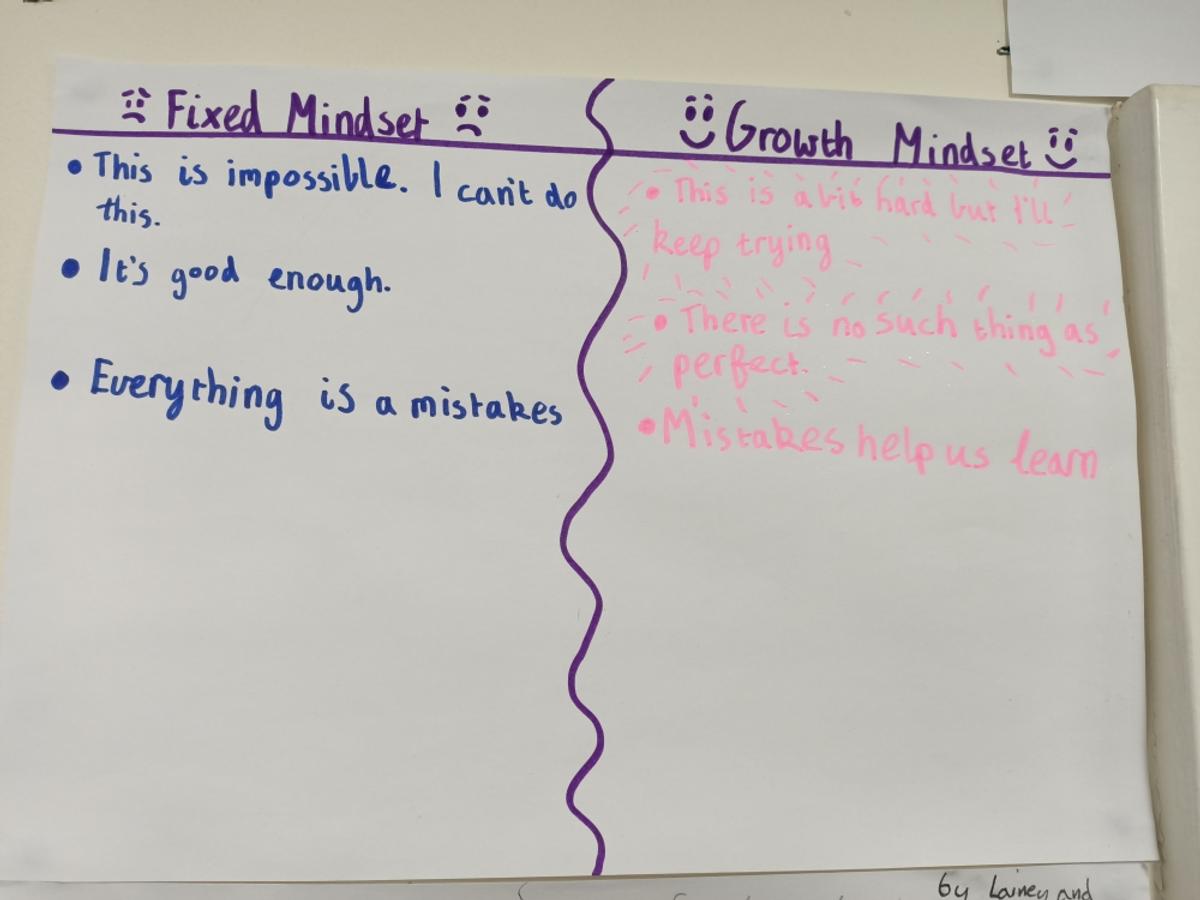 Fixed Mindset
• This is impossible. I can't do
this.
• It's good enough.
• Everything is a mistakes
Growth Mindset
• This is a bit hard but I'll
keep trying
• There is no such thing as
perfect.
• Mistakes help us learn
by Lainey and